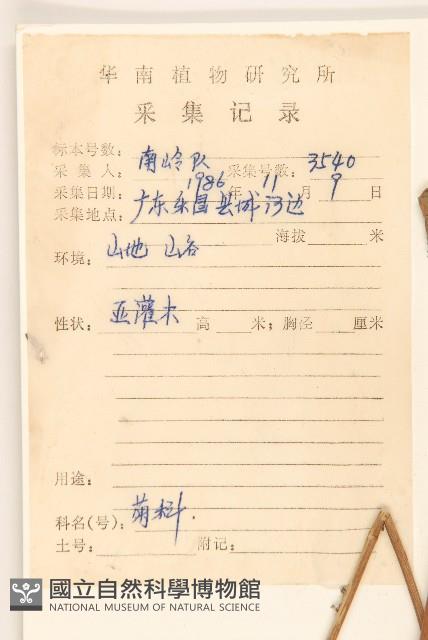 华南植物研究所
采集记录
标本号数:
采集人: 南岭队 采集号数: 3540
采集日期: 1986年 11月 9日
采集地点: 广东乐昌县城河边
海拔 米
环境: 山地 山谷
性状: 亚灌木 高 米; 胸径 厘米
用途:
科名(号): 菊科.
土号: 附记:
國立自然科學博物館
NATIONAL MUSEUM OF NATURAL SCIENCE